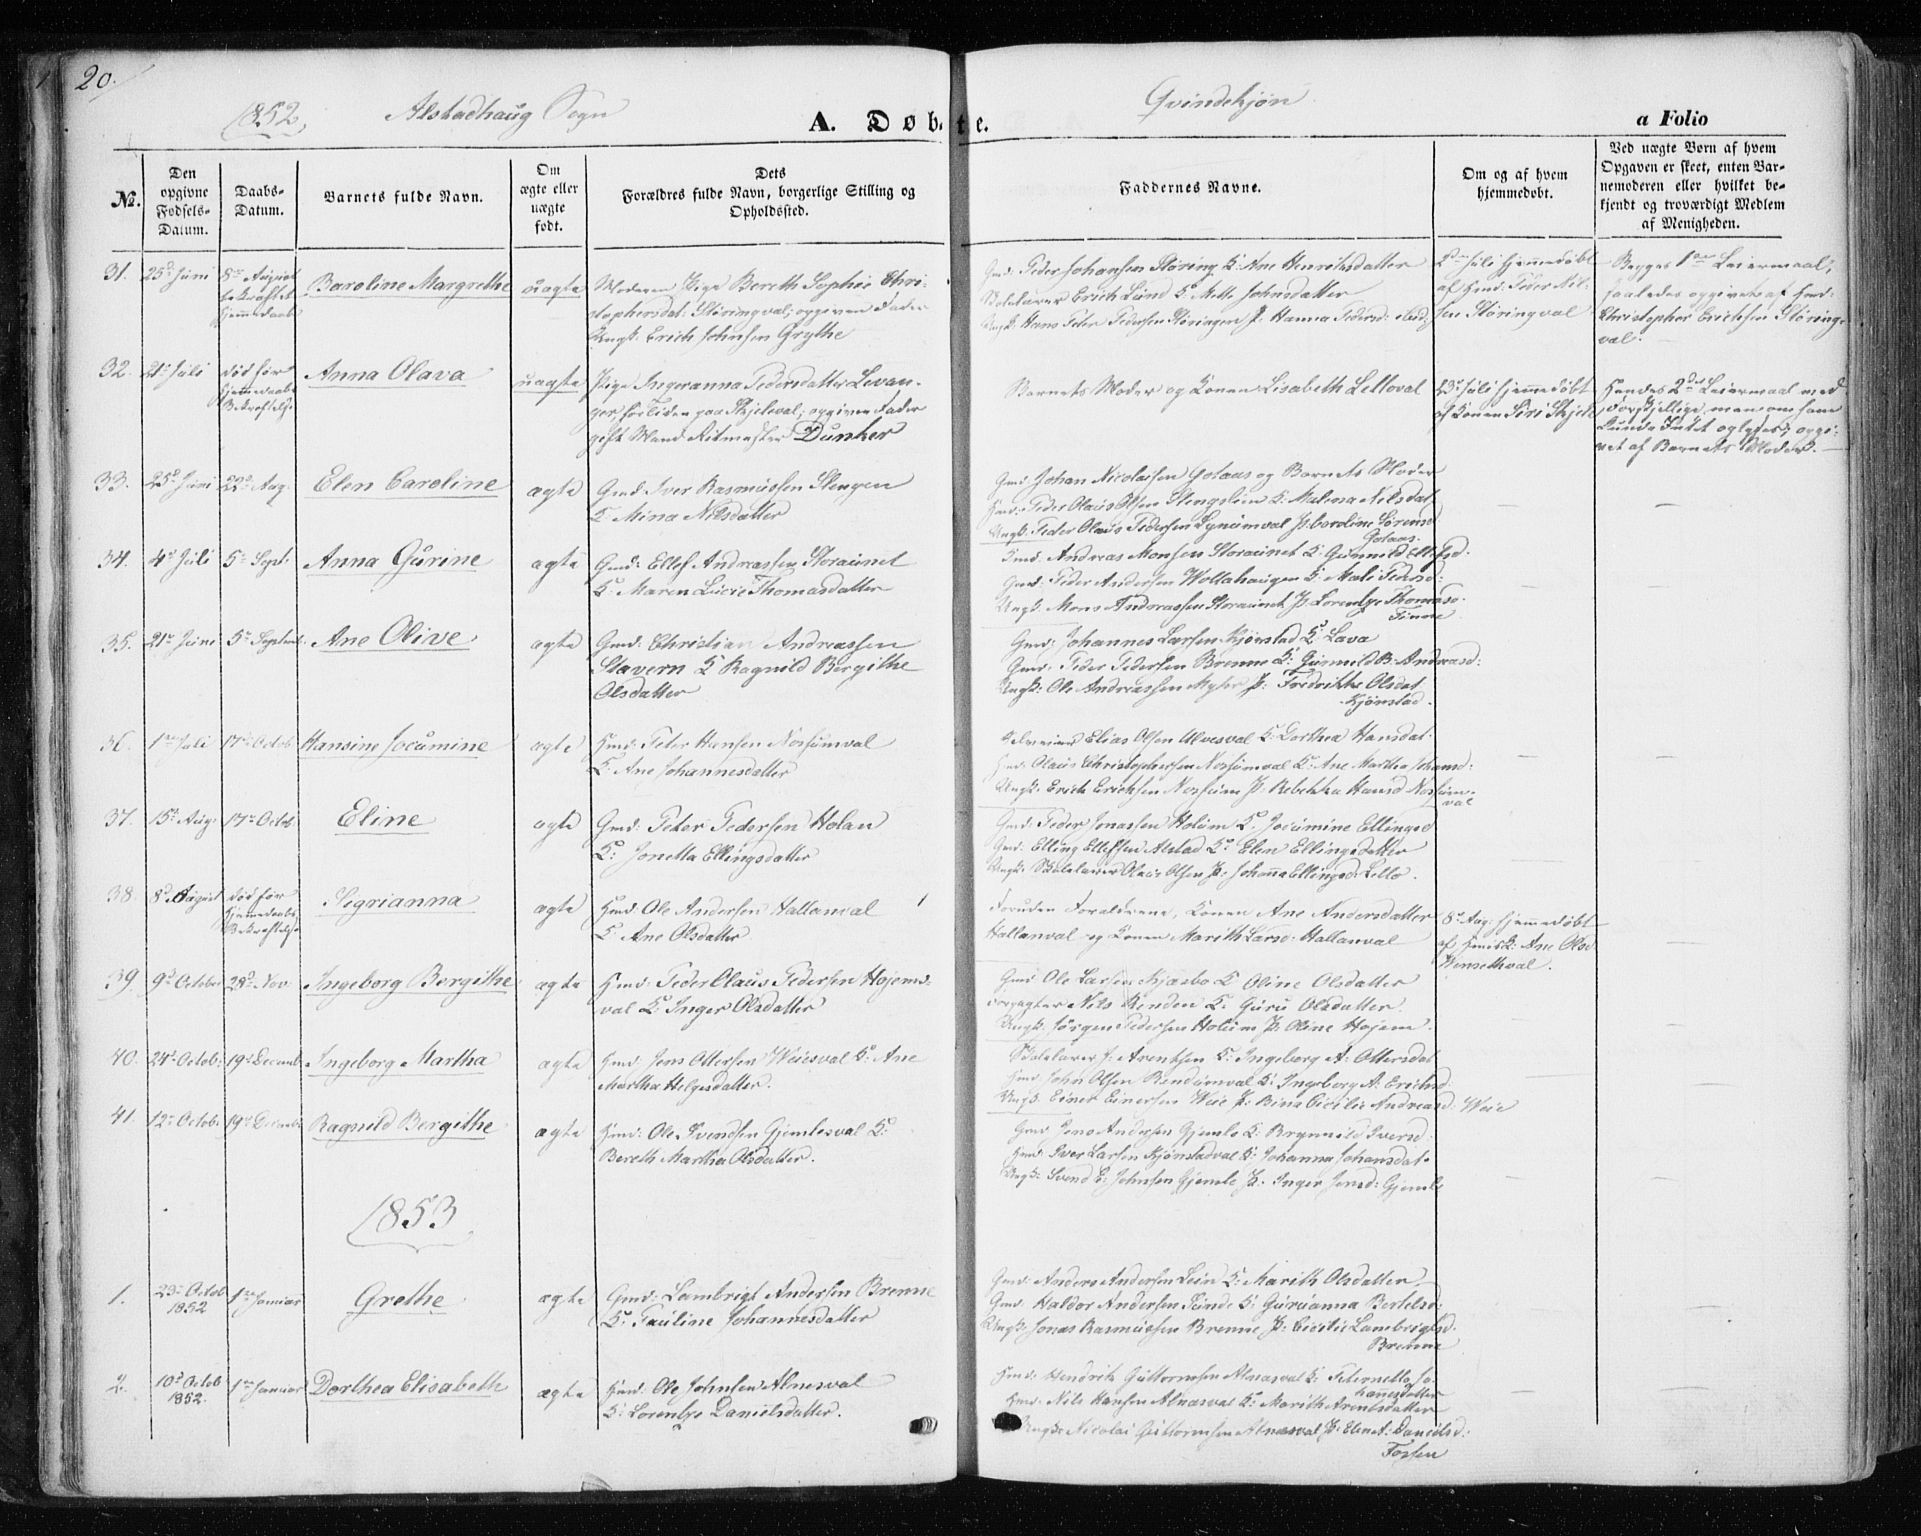 20.
1852,
Alstadhaug Sogn
A. Døbte.
Qvindekjøn
a Folio
No.
Den opgivne Fødsels-Datum.
Daabs-Datum.
Barnets fulde Navn.
Om ægte eller uægte født.
Dets Forældres fulde Navn, borgerlige Stilling og Opholdssted.
Faddernes Navne.
Om og af hvem hjemmedøbt.
Ved uægte Børn af hvem Opgaven er skeet, enten Barnemoderen eller hvilket bekjendt og troværdigt Medlem af Menigheden.
31. 25de Juni 8de August bekræftet hjemmedaab
Baroline Margrethe
uægte
Moderen Pige Bereth Sophie Chri-
stophersdat: Støringval; opgiven Fader
Ungk. Erich Johnsen Grythe
Gmd. Peder Johansen Støring K: Ane Henriksdatter
Skolelærer Erich Lund K. Mette Johnsdatter
Ungk. Hans Peter Pedersen Støringen P. Hanna Pedersd:
2den Juli hjemmedøbt
af Hmd. Peder Nil-
sen Støringval
Begges 1ste Leiermaal,
saaledes opgivet af Hmd:
Christopher Erichsen Støring-
val.
32. 21de Juli død før hjemmedaabs Bekræftelse
Anna Olava
uægte
Pige Ingeranna Pedersdatter Levan-
ger forliden paa Skjeleval; opgiven Fader
gift Mand Ritmester Dunker
Barnets Moder og Konen Lisabeth Lelloval
23de Juli hjemmedøbt
af Konen Siri Skjele
Hendes 2det Leiermaal med
forskjellige, men om ham
kunde Intet oplyses; opgi-
vet af Barnets Moder.
33. 25de Juni 22de Aug.
Elen Caroline
ægte
Gmd. Iver Rasmussen Slengen
K. Mina Nilsdatter
Gmd. Johan Nicolaisen Gotaas og Barnets Moder
Hmd: Peder Olaus Olsen Stengslien K: Malena Nilsdat
Ungk. Peder Olaus Pedersen Lynumval P. Caroline Sørensd
Gotaas.
34. 4de Juli 5te Sept.
Anna Gurine
ægte
Gmd: Ellef Andreassen Storaunet
K: Maren Lucie Thomasdatter
Gmd. Andreas Monsen Storaunet K. Gunnild Ellefsd.
Gmd: Peder Andersen Wollahaugen K. Mali Pedersd:
Ungk. Mons Andreassen Storaunet P. Lorentze Thomasd.
Tinne
35. 21de Juni 5te Septemb.
Ane Olive
ægte
Gmd: Christian Andreassen
Stavern K. Ragnild Bergithe
Olsdatter
Gmd: Johannes Larsen Kjønstad K. Lava
Gmd: Peder Pedersen Brenne K: Gunnild B: Andreasd:
Ungk: Ole Andreassen Mysen P: Fredrikke Olsdat
Kjønstad.
36. 1ste Juli 17de Octob.
Hansine Jocumine
ægte
Hmd: Peter Hansen Nossumval
K. Ane Johannesdatter
Selveier Elias Olsen Ulvesval K. Dorthea Hansdat.
Hmd. Olaus Christophersen Nossumval K: Ane Martha Johansd:
Ungk. Erich Erichsen Nossum P. Rebekka Hansd Nossum-
val
37. 15de Aug. 17de Octob.
Eline
ægte
Gmd: Peter Pedersen Holan
K. Jonetta Ellingsdatter
Gmd: Peder Jonassen Holum K. Jocumine Ellingsd
Gmd: Elling Ellefsen Alstad K. Elen Ellingsdatter
Ungk. Skolelærer Olaus Olsen P: Johanna Ellingsd: Lello.
38. 8de August død før hjemmedaabs Bekræftelse
Segrianna
ægte
Hmd. Ole Andersen Hallanval
K. Ane Olsdatter
Foruden Forældrene, Konen Ane Andersdatter
Hallanval og Konen Marith Larsd: Hallanval
8de Aug: hjemmedøbt
af K: Ane Olsd.
Winsethval.
39. 9de October 28de Nov.
Ingeborg Bergithe
ægte
Hmd: Peder Olaus Pedersen Hojems-
val K: Inger Olsdatter
Gmd Ole Larsen Kjæsbo K. Oline Olsdatter
Forpagter Nils Rinden K: Guru Olsdatter
Ungk. Jørgen Pedersen Holum P. Oline Hojem.
40. 24de Octob: 19de Decemb
Ingeborg Martha
ægte
Hmd: Jens Ottersen Weiesval K: Ane
Martha Helgesdatter.
Skolelærer J: Arentsen K: Ingeborg A: Ottersdat
Hmd: John Olsen Rendumval K: Ingeborg A: Erichsd:
Ungk. Einer Einersen Weie P: Bina Cicilie Andreasd: Weie
41. 12te Octob: 19de Decemb:
Ragnild Bergithe
ægte
Hmd: Ole Svendsen Gjemlesval K:
Bereth Martha Olsdatter.
Gmd Jens Andersen Gjemle K: Brynnild Iversd:
Hmd: Iver Larsen Kjønstadval K: Johanna Johansdat.
Ungk: Svend E: Johnsen Gjemle P. Inger Jensd: Gjemle
1853
1. 23de Octob 1852 1ste Januar
Grethe
ægte
Gmd: Lambrigt Andersen Brenne
K: Pauline Johannesdatter
Gmd: Anders Andersen Lein K: Marith Olsdatter
Gmd: Haldor Andersen Sunde K: Guruanna Bertelsd:
Ungk. Jonas Rasmussen Brenne P: Cicilie Lambrigtsd.
Brenne
2. 10de Octob 1852. 1ste Januar
Dorthea Elisabeth
ægte
Hmd: Ole Johnsen Alnesval
K: Lorentze Danielsdatter.
Hmd: Hendrik Guttormsen Alnesval K: Peternella Jo-
hannesdatter
Hmd: Nils Hansen Alnæsval K: Marith Arentsdatter
Ungk: Nicolai Guttormsen Alnæsval P: Elen A: Danielsd:
Fossen